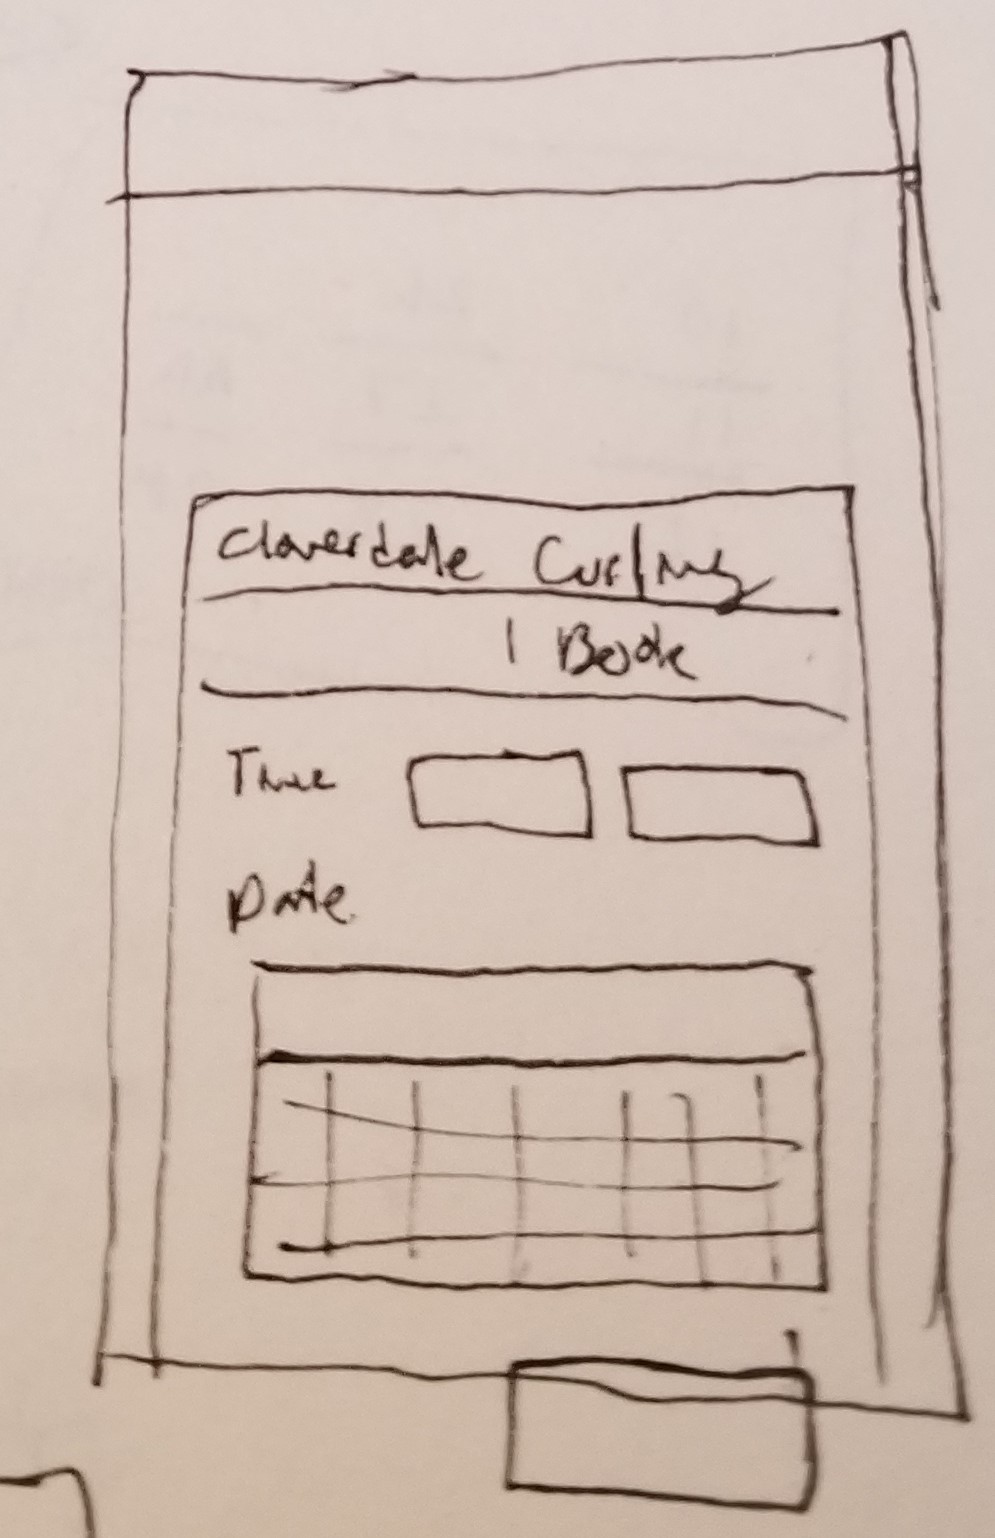 Cloverdale Curling
| Book
Time
Date